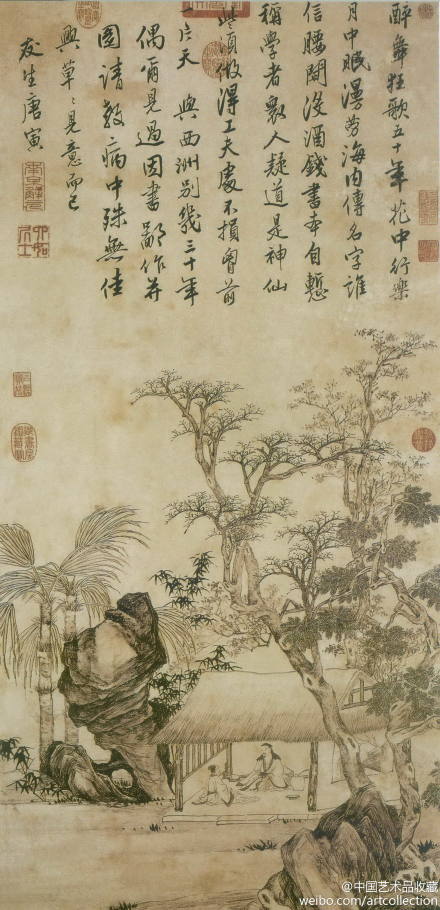 醉舞狂歌五十年花中行樂
月中眠漫勞海內傳名字誰
信腰間沒酒錢書本自慙
稱學者衆人疑道是神仙
些須做得工夫處不損胷前
一片天 與西洲別幾三十年
偶爾見過因書鄙作并
圖請教病中殊無佳
興草々見意而已
友生唐寅
南京解元
六如居士
@中国艺术品收藏
weibo.com/artcollection